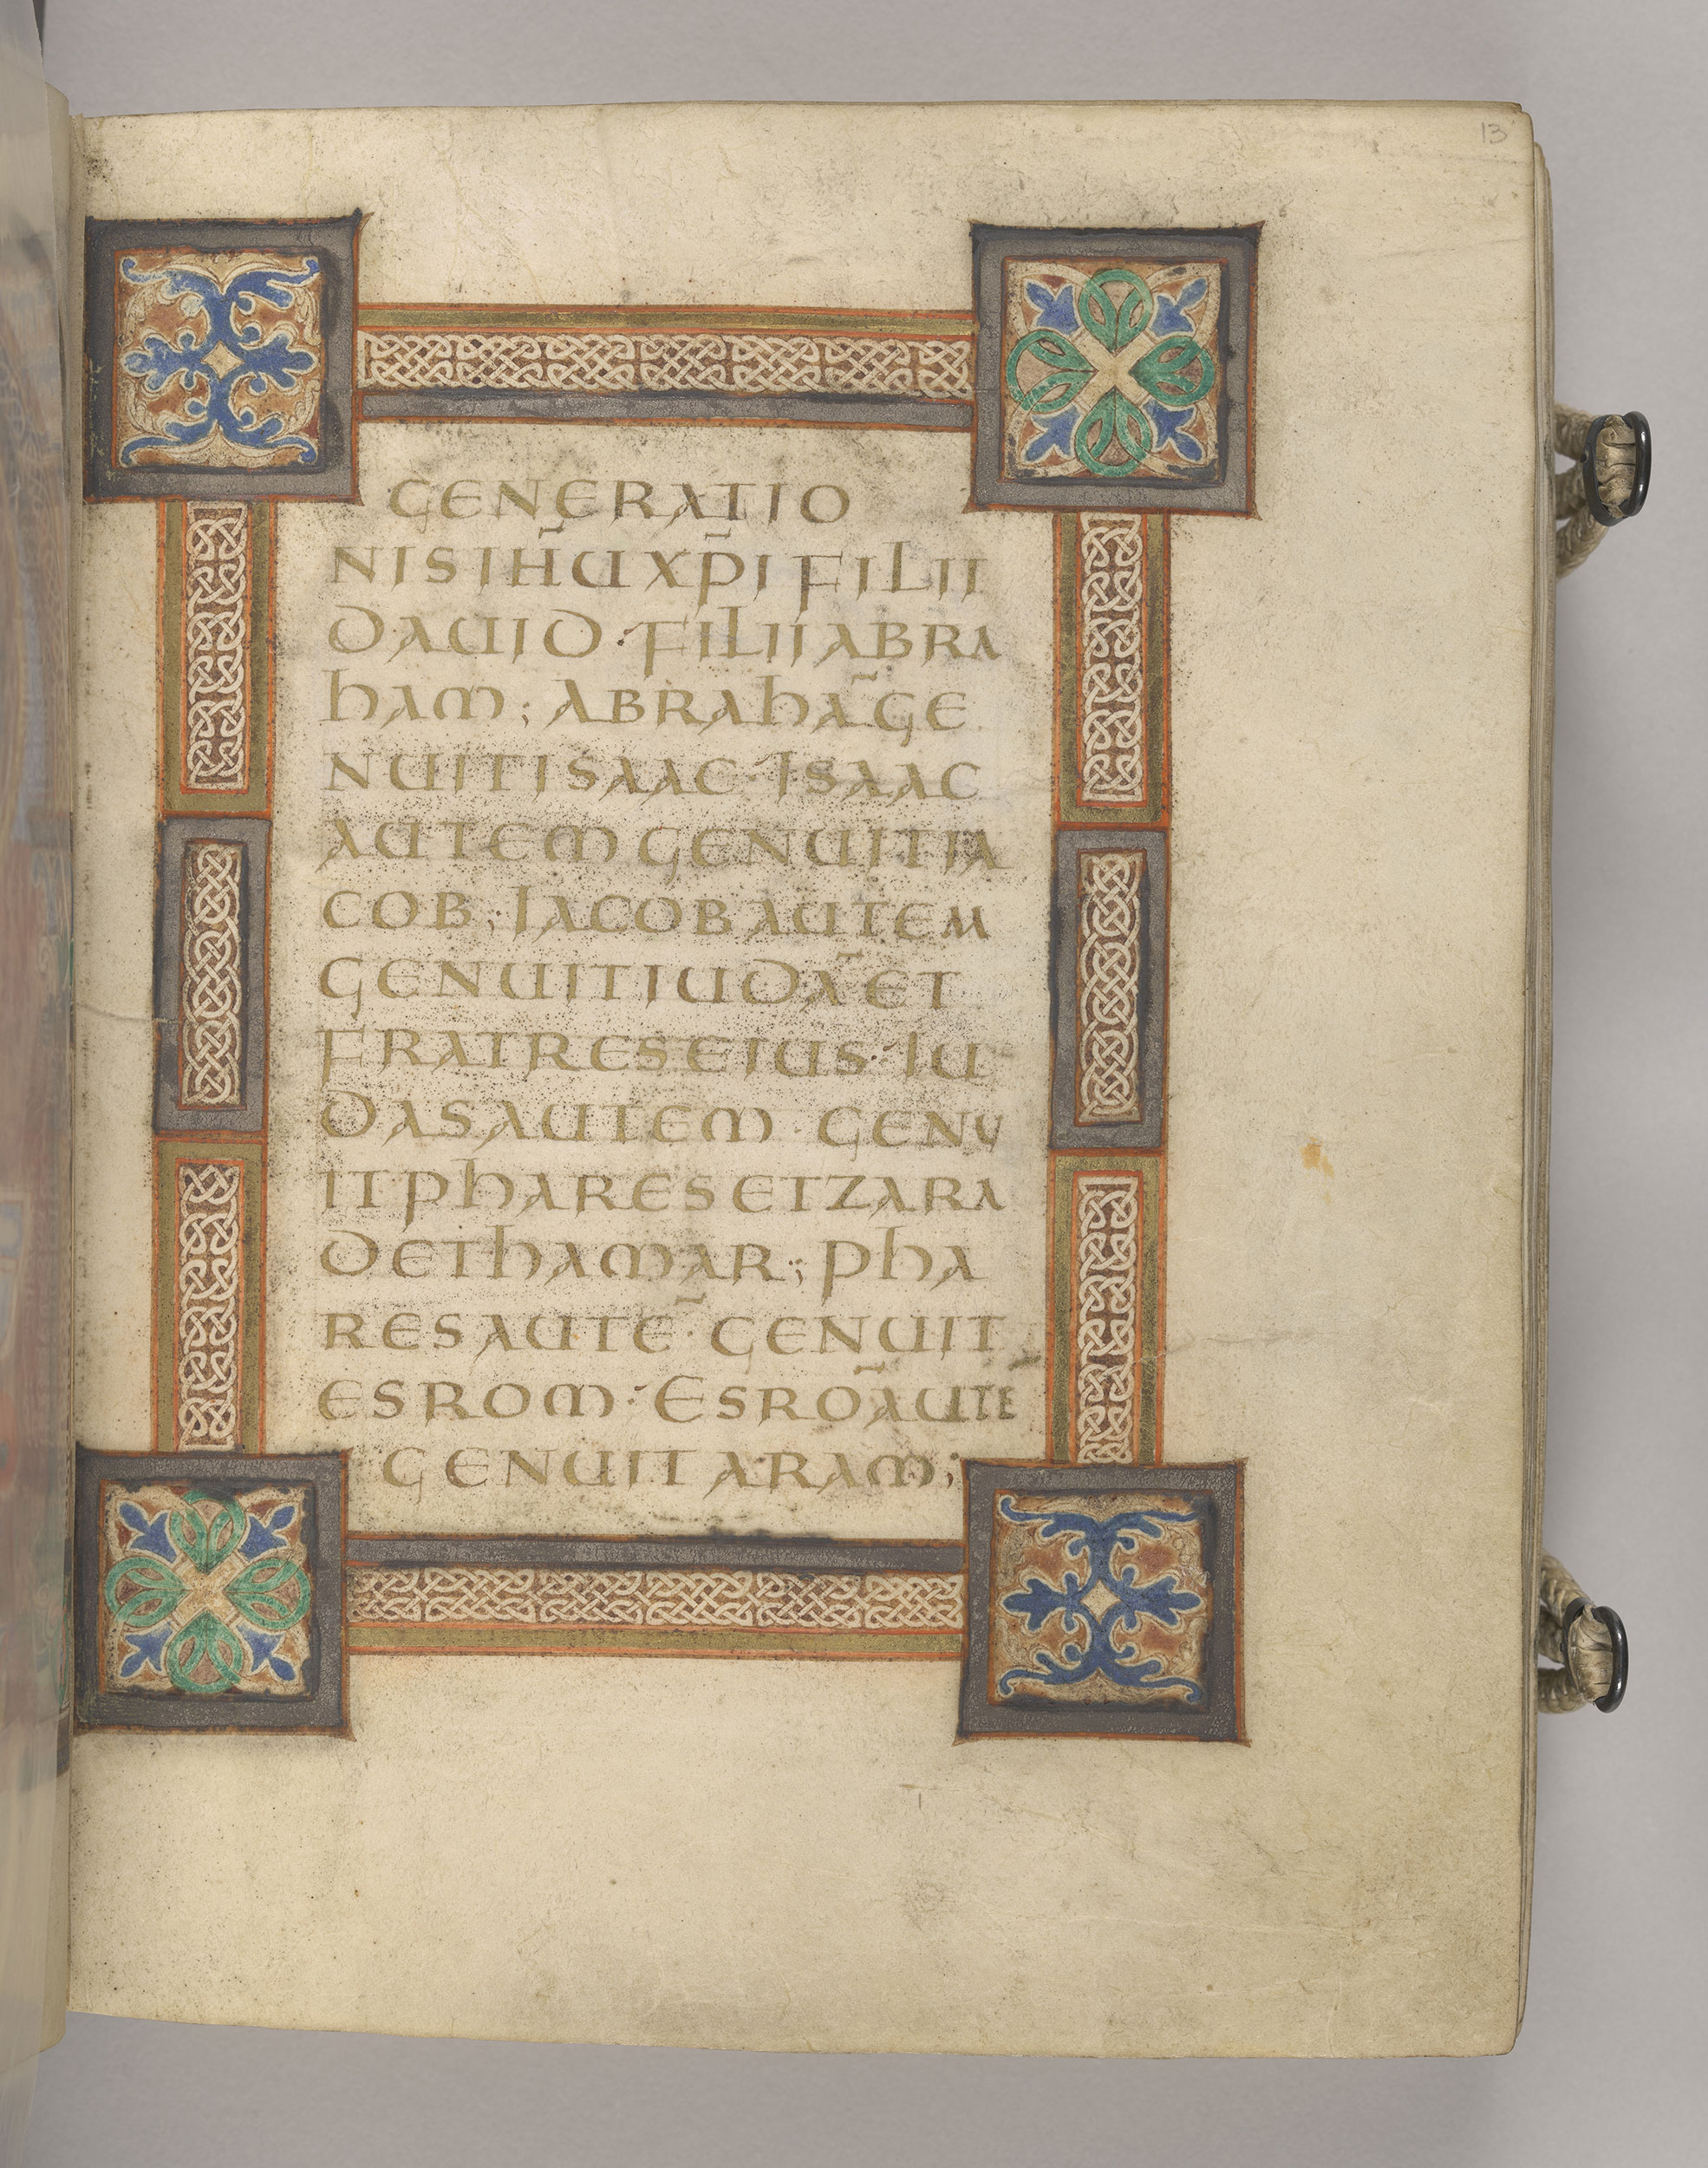 13
GENERATIO
NIS IH̅U XP̅I FILII
DAUID · FILII ABRA
hAM; ABRAhA̅ GE
NUIT ISAAC · ISAAC
AUTEM GENUIT IA
COB; IACOB AUTEM
GENUIT IUDA̅ ET
FRATRES EIUS · IU
DAS AUTEM · GENU
IT PhARES ET ZARA
DE ThAMAR; PhA
RES AUTE̅ · GENUIT
ESROM · ESRO̅ AUTE
GENUIT ARAM;